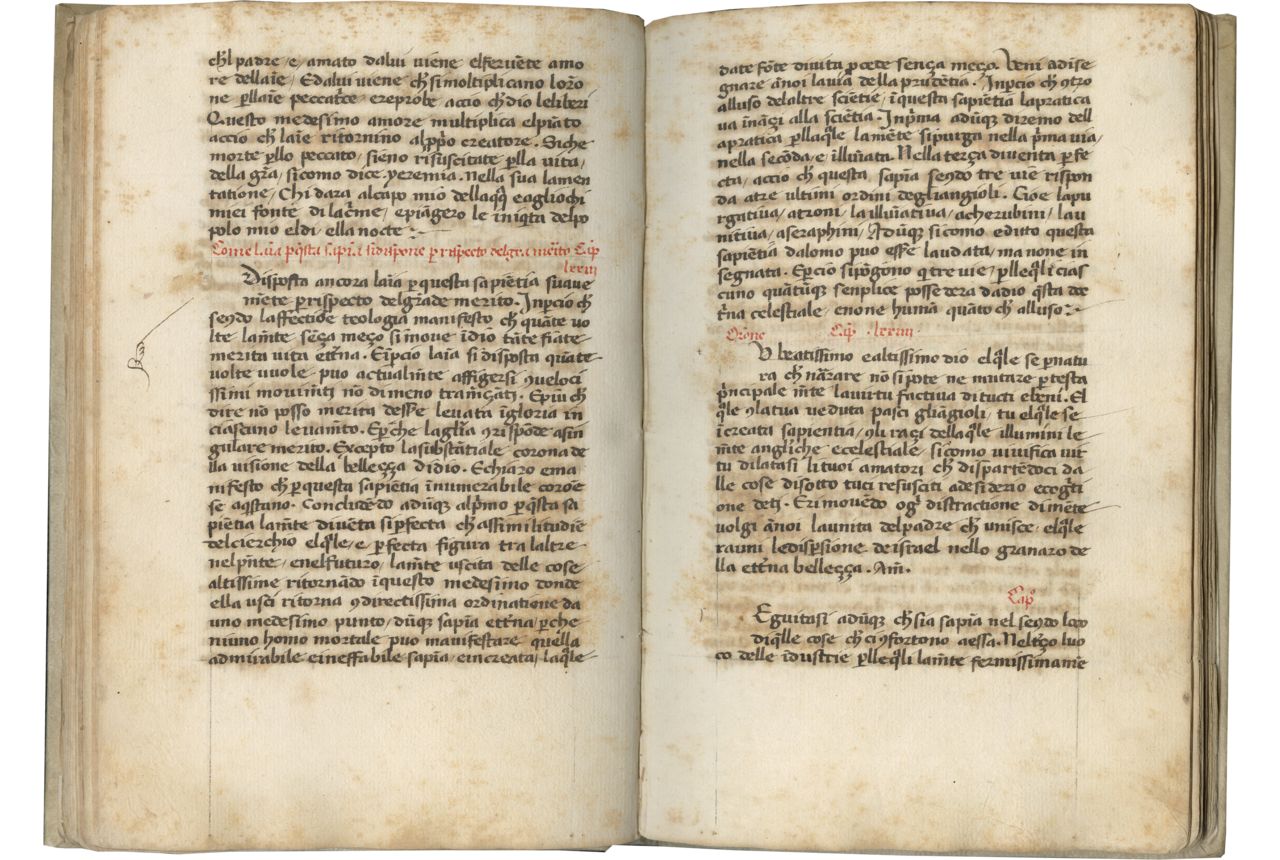 ch̃l padre / e / amato dalui viene elferuẽte amo
re dellaĩe / Edalui viene ch̃ si moltiplicano lor̃o
ne ꝑllaĩe peccatr̃ce ereprobe accio ch̃ dio leliberi
Questo medesimo amore multiplica elpiãto
accio ch̃ laĩe ritornino alꝓp̃o creatore . Siche
morte ꝑllo peccato / sieno risuscitate ꝑlla vita /
della gr̃a / si como dice . yeremia . nella sua lamen
tatione / Chi dara alcapo mio dellaq̃ eagliochi
miei fonte di lacr̃me / epiãgero le iniq̃ta delpo
polo mio eldi / ella nocte
Disposta ancora laĩa ꝑ questa sapiẽtia suaue
mẽte ꝑ rispecto delgrade merito . Inꝑcio ch̃
sendo laffectiõe teologia manifesto ch̃ quãte uo
lte lam̃te sẽça meço si moue ĩdio tãte fiate
merita vita etẽna . Eꝑcio laĩa si disposta quãte
volte vuole puo actualm̃te affigersi ꝯueloci
ssimi mouimẽti nõ di meno tram̃çati . Epiu ch̃
dire nõ posso merita desse leuata ĩgloria in
ciascuno leuam̃to . Eꝑche laglĩa ꝯrispõde asin
gulare merito . Excepto lasubstãtiale corona de
lla visione della belleçça didio . Echiaro e ma
nifesto ch̃ ꝑ questa sapiẽtia ĩnumerabile coroe
se aq̃stano . Concludẽdo adũq̃ alpr̃mo ꝑ q̃sta sa
piẽtia lam̃te diuẽta si ꝑfecta ch̃ assimilitudiẽ
delcierchio elq̃le / e / ꝑfecta figura tra laltre
nelpñte / enelfuturo / lam̃te uscita delle cose
altissime ritornãdo ĩquesto medesimo donde
ella usci ritorna ꝯdirectissima ordinatione da
uno medesimo punto / dũq̃ sapĩa etẽna / ꝑche
niuno homo mortale puo manifestare quella
admirabile eineffabile sapĩa / eincreata / laq̃le
date fõte diuita ꝓcede sença meço . Veni adise
gnare ãnoi lauia della prudẽtia . Inꝑcio ch̃ ꝯtro
alluso delaltre sciẽtie / ĩquesta sapiẽtia lapratica
va inãçi alla sciẽtia . Inpr̃ma adũq̃ diremo dell
apratica ꝑllaq̃le lamẽte si purga nella pr̃ma via /
nella secõda / e / illuĩata . Nella terça diuenta ꝑfe
cta / accio ch̃ questa sapĩa sendo tre vie rispon
da atre ultimi ordini degliangioli . Cioe lapu
rgatiua / atroni / la illuĩatiua / acherubini / lau
nitiua / aseraphini / Adũq̃ si como eduto questa
sapiẽtia dalomo puo esse laudata / ma none in
segnata . Eꝑcio si põgono q̃ tre vie / ꝑlleq̃li cias
cuno quãtũq̃ senplice posse dera dadio q̃sta doc
tr̃na celestiale / enone humã quãto ch̃ alluso
Or̃one Cap̃ . lxxiiii .
O beatissimo ealtissimo dio elq̃le se ꝑ natu
ra ch̃ nãrare nõ si pote ne mutare ꝑ testa
pr̃ncipale m̃te lauirtu factiua di tucti ebeni . El
q̃le ꝯlatua veduta pasci gliãgioli / tu elq̃le se
ĩcreata sapientia / ꝯli raçi dellaq̃le illumini le
m̃te angliche ecelestiale / si como viuifica vir
tu dilatasi lituoi amatori ch̃ dispartẽdoci da
lle cose disotto tuci resusciti adesiderio ecogr̃ti
one deti . Erimouẽdo og̃ distractione dimẽte
volgi ãnoi launita delpadre ch̃ unisce / elq̃le
rauni ledispsione deisrael nello granaro de
lla etẽna belleçça . Am̃ .
Cap̃º
Eguitasi adũq̃ ch̃ sia sapĩa nel sendo loco
diq̃lle cose ch̃ ci ꝯfortono aessa . Neltr̃ço luo
co delle ĩdustrie ꝑlleq̃li lam̃te fermissimame